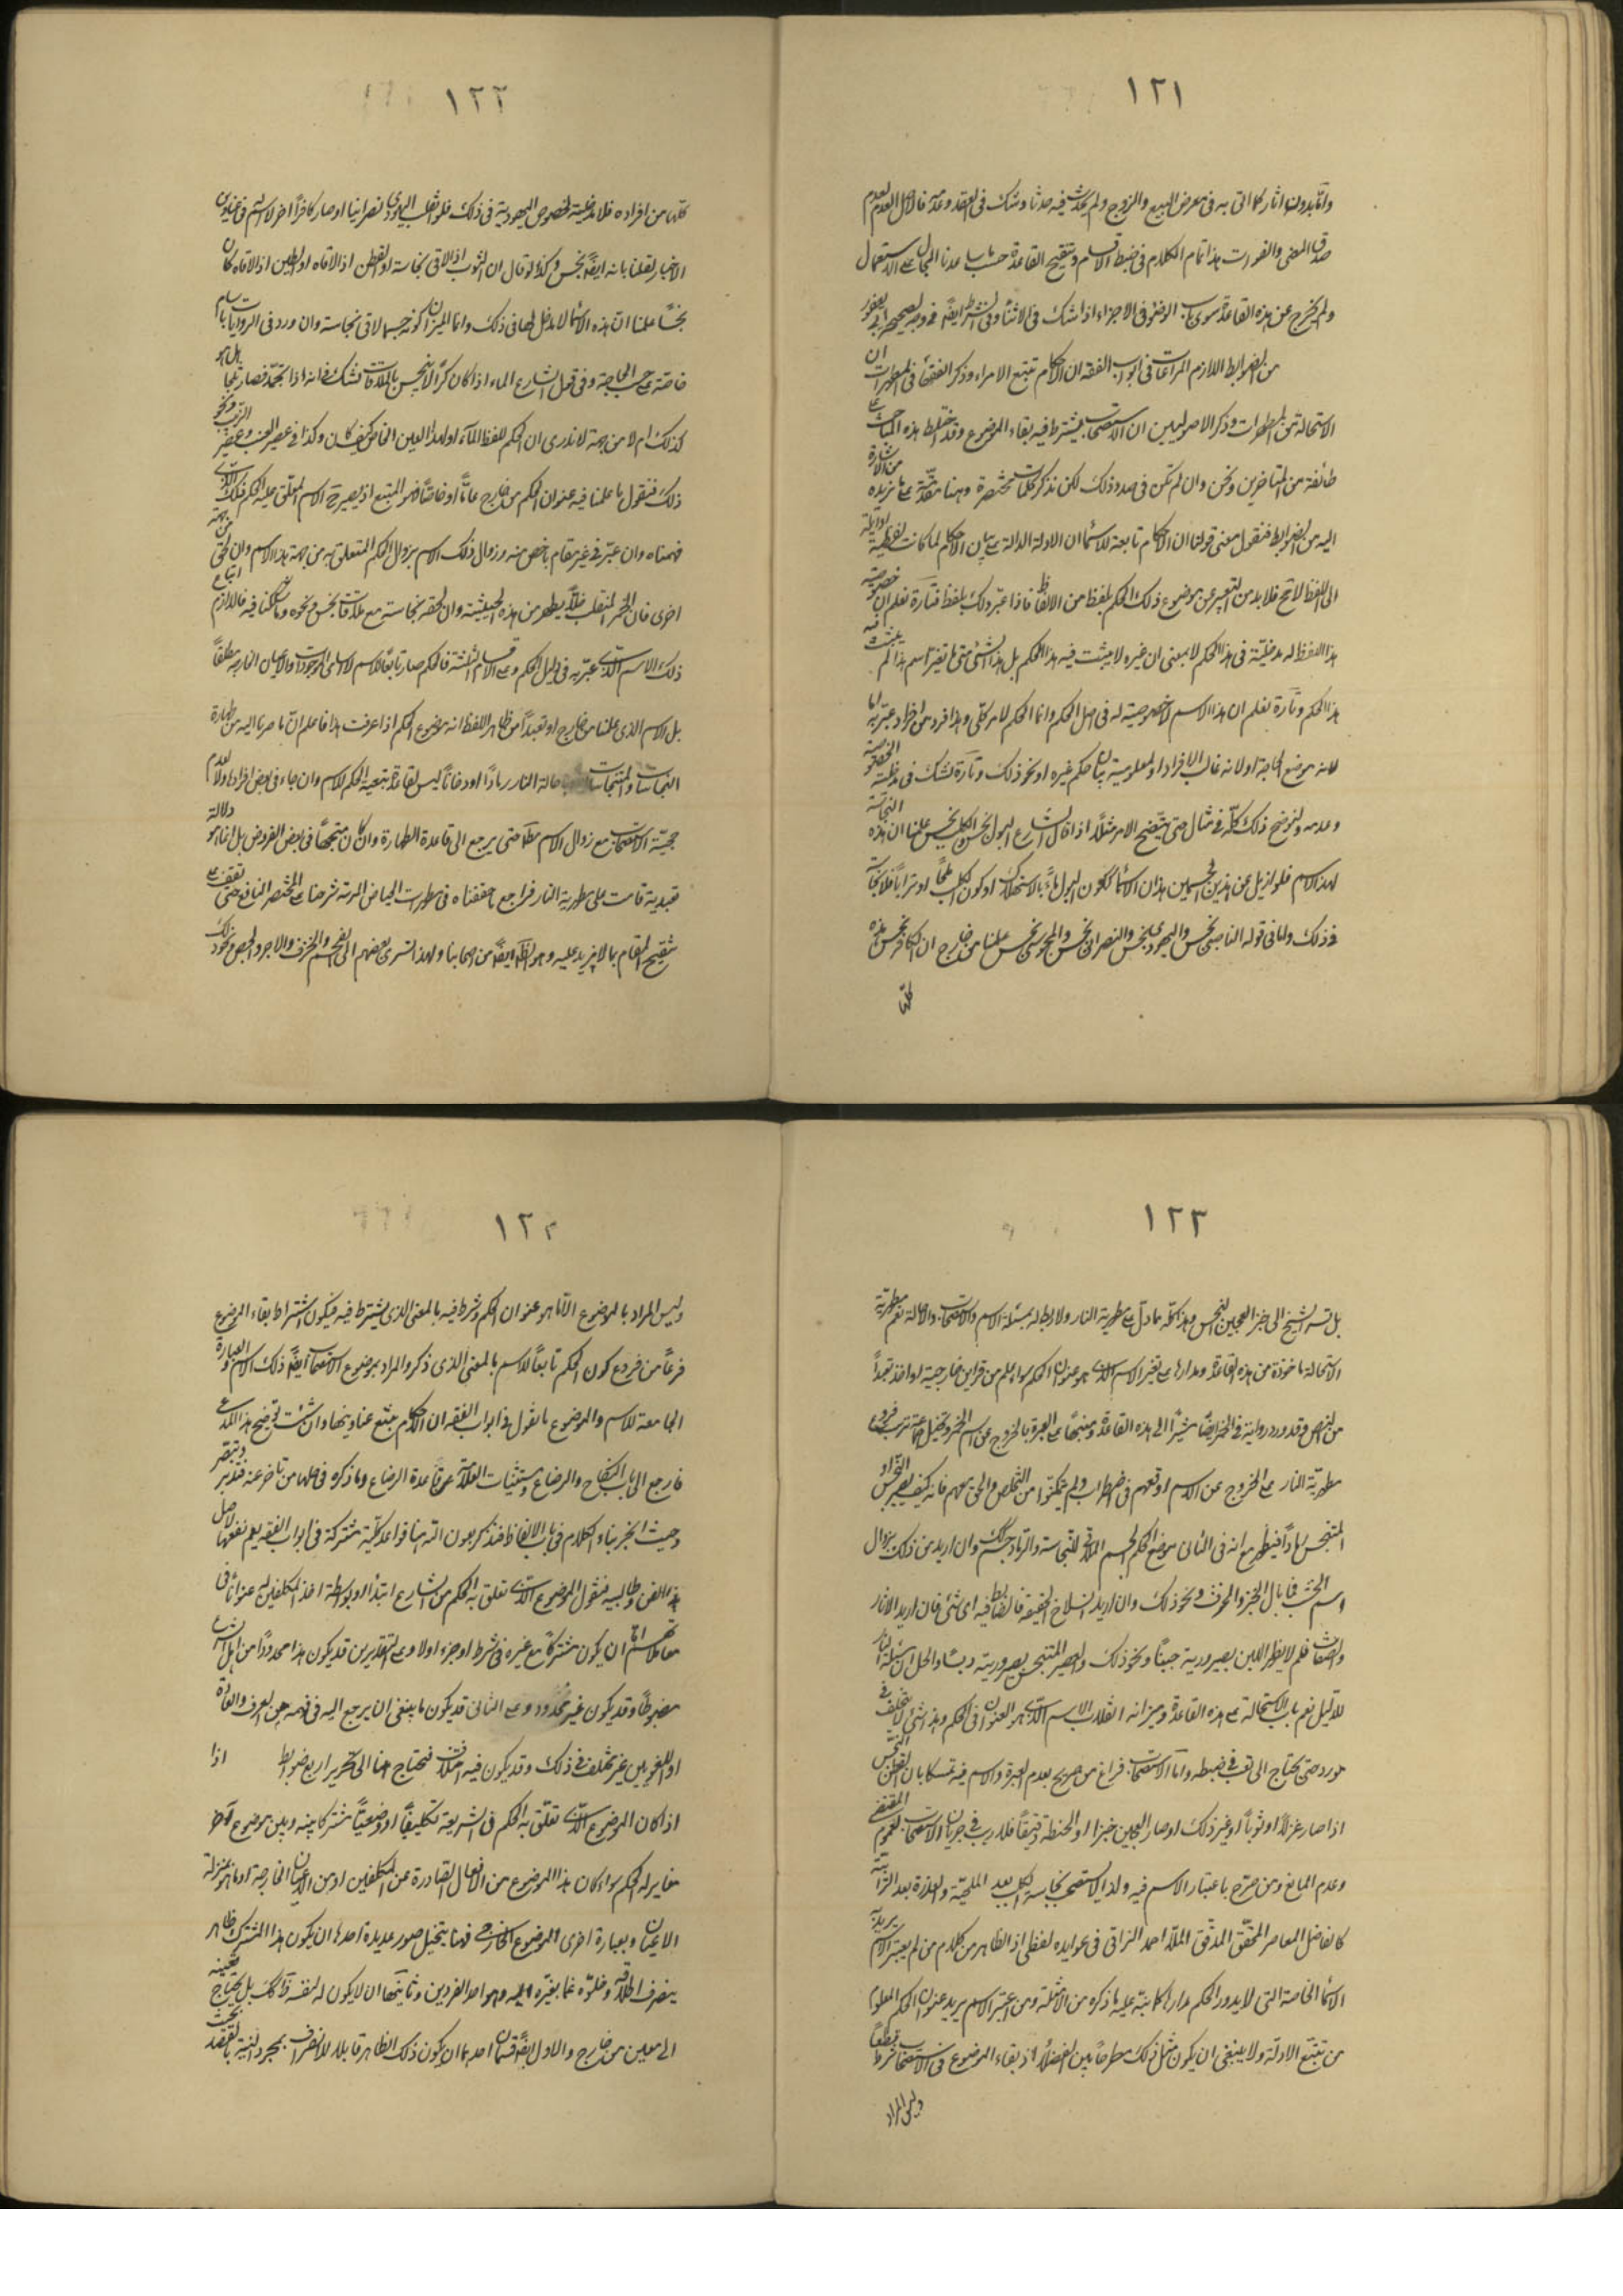 ١٢١
وانه بدون اثار كما اتى به فى معرض البيع والزوج ولم يحدث فيه حدثا وشك فى القصد وعدمه فالاصل العدم لعدم
صدق المعنى والفورت هذا تمام الكلام فى ضبط الاقسام وتنقيح القاعدة حسب ما ساعدنا المجال على الاستعمال
ولم يخرج عن هذه القاعدة سوى باب الوضوء فى الاجزاء اذا شك فى الاثناء وفى الشرط ايضا
من الضوابط اللازم المراعات فى ابواب الفقه ان الاحكام تتبع الاسماء وذكر الفقهاء فى المطهرات ان
الاستحالة من المطهرات وذكر الاصوليين ان الاستصحاب يشترط فيه بقاء الموضوع وقد اختلط هذه المباحث على
طائفة من المتاخرين ونحن وان لم نكن فى صدد ذلك لكن نذكر كلمات مختصرة وهنا مقدمة على ما نريده من الاشارة
اليه من الضوابط فنقول معنى قولنا ان الاحكام تابعة للاسماء ان الادلة الدالة على بيان الاحكام لما كانت لفظية
الى اللفظ لا محة فلا بد من التعبير عن موضوع ذلك الحكم بلفظ من الالفاظ فاذا عبر ذلك بلفظ فتارة نعلم ان خصوصية
هذا اللفظ له مدخلية فى هذا الحكم لا بمعنى ان غيره لا يثبت فيه هذا الحكم بل هذا الشئ متى ما تغير اسم هذا لم يثبت فيه
هذا الحكم وتارة نعلم ان هذا الاسم لا خصوصية له فى اصل الحكم وانما الحكم لامر كلى وهذا فرد من افراده عبر به اما
لانه موضع الحاجة او لانه غالب الافراد او لمعلومية بيان حكم غيره او نحو ذلك وتارة نشك فى مدخلية الخصوصية
وعدمه ولنوضح ذلك كله فى مثال حتى يتضح الامر مثلا اذا قال الشارع البول نجس والكلب نجس علمنا ان هذه النجاسة
لهذا الاسم فلو ازيل عن هذين الجسمين هذان الاسمان ككون البول ماء بالاستهلاك او كون الكلب ملحا او ترابا فلا نجاسة
فى ذلك واما فى قوله الناصبى نجس واليهودى نجس والنصرانى نجس والمجوسى نجس علمنا من خارج ان الكافر نجس هذه
كلها
١٢٢
كلها من افراده فلا مدخلية لخصوص اليهودية فى ذلك فلو انقلب اليهودى نصرانيا او صار كافرا اخر لا اسم فى عناوين
الاخبار لقلنا بانه ايضا نجس وكذا لو قال ان الثوب اذا لاقى نجاسة او القطن اذا لاقاه او الطين اذا لاقاه كان
نجسا علمنا ان هذه الاسماء لا مدخل لها فى ذلك وانما الميزان كونه جسما لاقى نجاسة وان ورد فى الروايات باسام
خاصة على حسب الحاجة وفى قول الشارع الماء اذا كان كرا لا ينجس بالملاقات نشك فى انه اذا تجمد فصار ثلجا هل هو
كذلك ام لا من جهة لا ندرى ان الحكم للفظ الماء او لهذا العين الخاص كيف كان وكذا فى عصير العنب وعصير الزبيب ونحو
ذلك فنقول ما علمنا فيه عنوان الحكم من خارج عاما او خاصا فهو المتبع اذ يصير ح الاسم المعلق عليه الحكم ذلك الذى
فهمناه وان عبر فى غير مقام باخص منه وزوال ذلك الاسم بزوال الحكم المتعلق به من جهة هذا الاسم وان لحق من جهة
اخرى فان الخمر المنقلب خلا يطهر من هذه الحيثية وان لحقه نجاسة مع ملاقات نجس ونحوه وما شككنا فيه فاللازم اتباع
ذلك الاسم الذى عبر به فى دليل الحكم وعلى الاقسام الثلثة فالحكم صار تابعا للاسم لا لساير الموجودات والاعيان الخارجية مطلقا
بل الاسم الذى علمنا من خارج او تعبدا من ظاهر اللفظ انه موضوع الحكم اذا عرفت هذا فاعلم ان ما صرنا اليه من طهارة
النجاسات والمتنجسات باحالة النار رمادا او دخانا ليس لقاعدة تبعية الحكم للاسم وان جاء فى بعض افراده ولا لعدم
حجية الاستصحاب مع زوال الاسم مطلقا حتى يرجع الى قاعدة الطهارة وان كان متجها فى بعض الفروض بل انما هو دلالة
تعبدية قامت على مطهرية النار فراجع ما حققناه فى مطهرات الحياض المترعة شرحنا على المختصر النافع حتى تقف على
تنقيح المقام بما لا مزيد عليه وهو الظاهر ايضا من اصحابنا ولهذا تسرى بعضهم الى الفحم والخزف والاجر والجص ونحو ذلك
١٢٣
بل تسرى الشيخ الى خبز العجين النجس وهذا كله مما دل على مطهرية النار ولا ربط له بمسئلة الاسم والاستصحاب والاحالة نعم مطهرية
الاستحالة ماخوذة من هذه القاعدة ومدارها على تغير الاسم الذى هو عنوان الحكم سواء علم من قرائن خارجية او اخذ تعبدا
من النص وقد ورد رواية فى الخمر ايضا مشيرا الى هذه القاعدة ومنبها على العبرة بالخروج عن اسم الخمر وتخيل جماعة ترتب فروع
مطهرية النار على الخروج عن الاسم اوقعهم فى اضطراب ولم يتمكنوا من التخلص والحق معهم فانه كيف يصير الدواء
المتنجس رمادا فيطهر مع انه فى الثانى موضع الحكم الجسم الملاقى للنجاسة والرماد جسم كذلك وان اريد من ذلك زوال
اسم الخشب فما بال الخبز والخزف ونحو ذلك وان اريد انسلاخ الحقيقة فالضابط فيه اى شئ فان اريد الاثار
والصفات فلم لا يطهر اللبن بصيرورته جبنا ونحو ذلك والعصير المتنجس بصيرورته دبسا والحل ان مسئلة النار
للدليل نعم باب الاستحالة على هذه القاعدة وميزانه انقلاب الاسم الذى هو العنوان فى الحكم وهذا شئ لا يتخلف فى
مورد حتى يحتاج الى تعب فى ضبطه واما الاستصحاب فراغ من صريح بعدم العبرة والاسم فيه تمسكا بان القطن النجس
اذا صار غزلا او ثوبا او غير ذلك او صار العجين خبزا او الحنطة دقيقا فلا ريب فى جريان الاستصحاب لعموم المقتضى
وعدم المانع ومن صرح باعتبار الاسم فيه ولذا لا يستصحب نجاسة الكلب بعد الملحية والعذرة بعد الترابية
كالفاضل المعاصر المحقق المدقق الملا احمد النراقى فى عوايده لفظى اذ الظاهر من كلام من لم يعتبر الاسم يريد به
الاسماء الخاصة التى لا يدور الحكم مدارها كما ينبه عليه ما ذكره من الامثلة ومن اعتبر الاسم يريد عنوان الحكم المعلوم
من تتبع الادلة ولا ينبغى ان يكون مثل ذلك مطرحا بين الفضلاء اذ بقاء الموضوع فى الاستصحاب شرط قطعا
وليس المراد
١٢٤
وليس المراد بالموضوع الا ما هو عنوان الحكم وشرط فيه بالمعنى الذى يشترط فيه فيكون اشتراط بقاء الموضوع
فرعا من فروع كون الحكم تابعا للاسم بالمعنى الذى ذكر والمراد بموضوع الاستصحاب ايضا ذلك الاسم والعبارة
الجامعة للاسم والموضوع ما نقول فى ابواب الفقه ان الاحكام يتبع عناوينها وان شئت توضيح هذا المدعى
فارجع الى باب النكاح والرضاع ومستثنيات العلامة عن قاعدة الرضاع وما ذكره فى حلها من تاخر عنه فتدبر وتبصر
وحيث انجر بناء الكلام فى باب الالفاظ فنذكر بعون الله هنا قواعد كلية مشتركة فى ابواب الفقه يعم نفعها لاهل
هذا الفن وطالبيه فنقول الموضوع الذى تعلق به الحكم من الشارع ابتداء او بواسطة اخذ المكلفين له عنوانا فى
معاملاتهم اما ان يكون مشتركا مع غيره فى شرط او جزء او لا وعلى التقديرين قد يكون هذا محدودا من اهل الشرع
مضبوطا وقد يكون غير محدود وعلى الثانى قد يكون ما ينبغى ان يرجع اليه فى فهمه من العرف والعادة
او اللغويين غير مختلف فى ذلك وقد يكون فيه اختلاف فنحتاج هنا الى تحرير اربع ضوابط اذا
اذا كان الموضوع الذى تعلق به الحكم فى الشريعة تكليفيا او وضعيا مشتركا بينه وبين موضوع اخر
مغاير له الحكم سواء كان هذا الموضوع من الافعال الصادرة عن المكلفين او من الاعيان الخارجة او ما هو بمنزلة
الاعيان وبعبارة اخرى الموضوع الخارجى فهنا يتخيل صور عديدة احدها ان يكون هذا المشترك ظاهر
ينصرف اطلاقه وخلوه عما يغيره اليه وهو احد الفردين وثانيها ان لا يكون له لنفسه ذلك بل يحتاج تعيينه
الى معين من خارج والاول ايضا قسمان احدهما ان يكون ذلك الظاهر قابلا للانصراف بمجرد النية والقصد بحيث